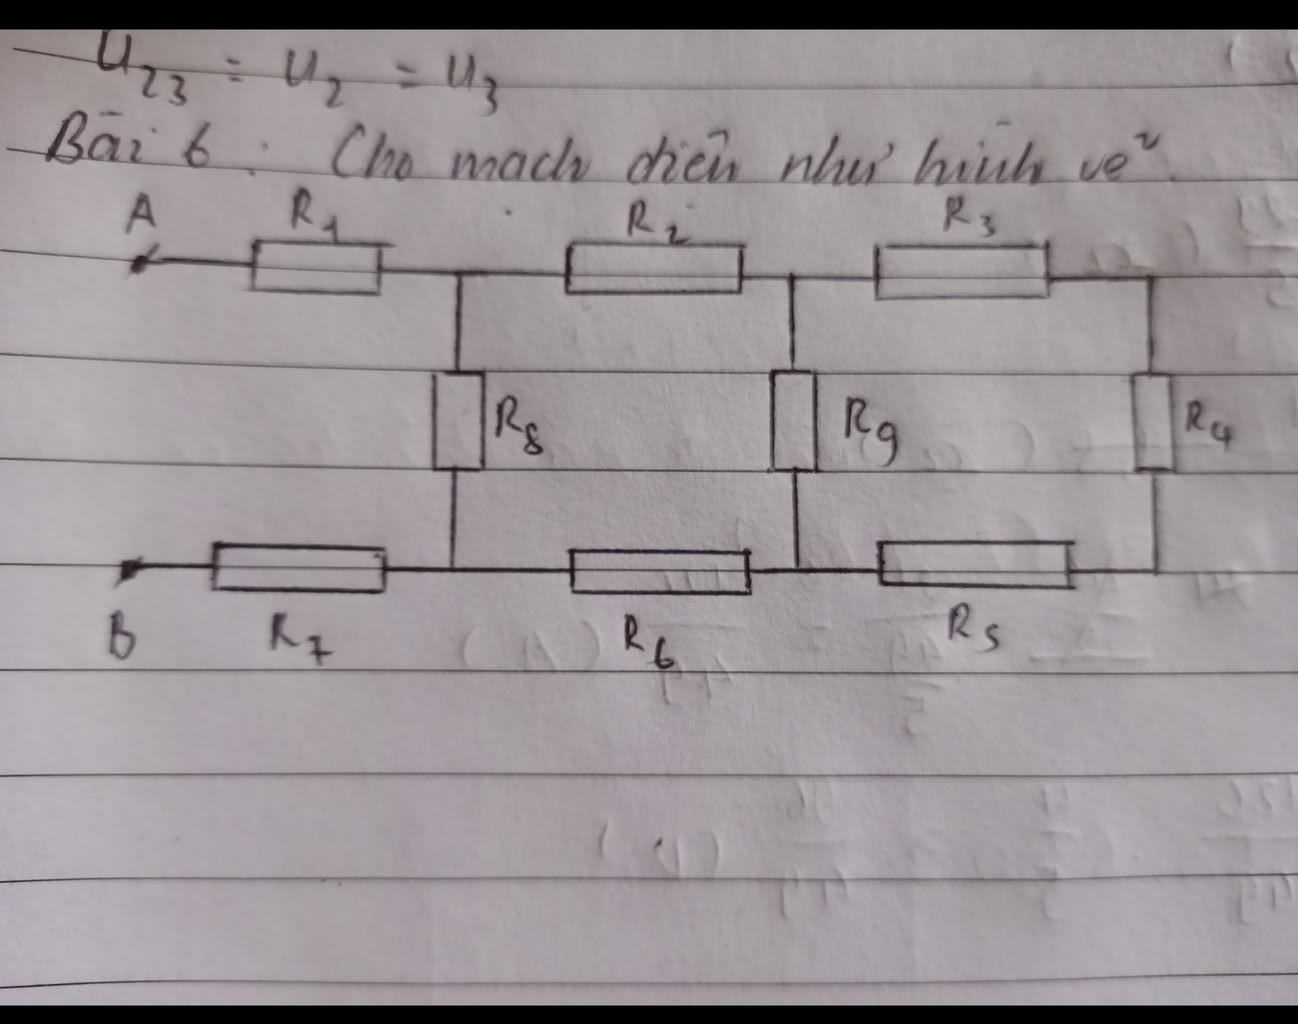 U23 = U2 = U3
Bài 6 : Cho mạch điện như hình vẽ
A R1 R2 R3
R8 R9 R4
B R7 R6 R5